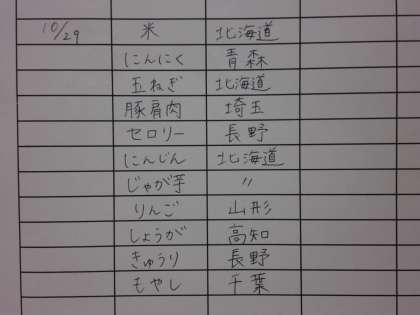 10/29 米 北海道
にんにく 青森
玉ねぎ 北海道
豚肩肉 埼玉
セロリー 長野
にんじん 北海道
じゃが芋 〃
りんご 山形
しょうが 高知
きゅうり 長野
もやし 千葉